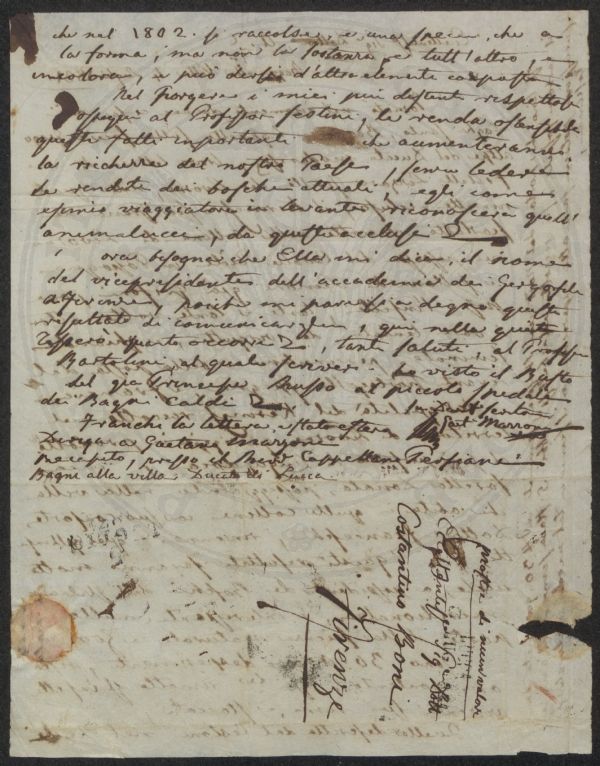 che nel 1802. si raccolse, e una specie, che a
la forma, ma non la sostanza e tutt'altro, e
incolora, e può dersi d'altro elementi composta
Nel Porgere i miei più distinti rispettosi
ossequi al Professor Sestini, le renda
questi fatti importanti che aumenteranno
la ricchezza del nostro Paese, senza ledere
le rendite dei boschi attuali, egli come
esimio viaggiatore in levante riconoscerà quell'
animalucci, da questi acclusi
ora bisogna che Ella mi dica, il nome
del vicepresidente dell'accademia dei Georgofili
di Firenze, poiché mi paressi a degno questo
risultato di comunicarglielo, qui nella quiete
spero quanto occorre, tanti saluti, al Proffe
Bartolini, al quale scriverò ho visto il Busto
del già Principe Russo al piccolo spedale
dei Bagni Caldi
Franchi la lettera
Gaet Marroni
Diriga a Gaetano Marroni
Recapito, presso il Cappellano Persiani
Bagni alla villa. Ducato di Lucca.
Costantino Boni
Firenze